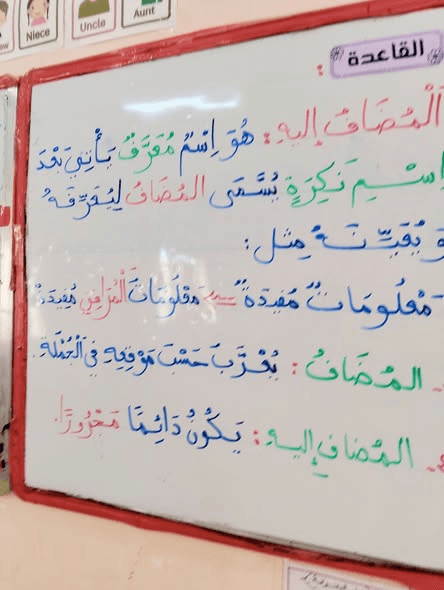 Niece
Uncle
Aunt
القاعدة
:
اَلْمُضَافُ إِليهِ: هُوَ اِسْمٌ مُعَرَّفٌ يَأْتِي بَعْدَ
اسْمٍ نَكِرَةٍ يُسَمَّى المُضَافُ لِيُعَرِّفَهُ
وَ يُعَيِّنَهُ مِثل:
مَعْلُومَاتٌ مُفِيدَةٌ مَعْلُومَاتُ الْمَرَاعِي مُفِيدَة
- المُضَافُ: يُعْرَبُ حَسْبَ مَوْقِعِهِ فِي الْجُمْلَةِ
- المُضَافِ إِليهِ: يَكُونُ دَائِمًا مَجْرُورًا.